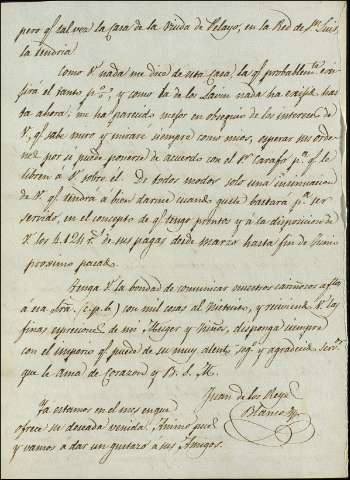 pero q.e tal vez la Casa de la Viuda de Pelayo, en la Red de S.n Luis,
la tendria
Como V. nada me dice de esta casa, la q.e probablem.te exi-
jirá el tanto p.% y como la de los Llanos nada ha exijido has-
ta ahora, me ha parecido mejor en obsequio de los intereses de
V. q.e sabe miro y miraré siempre como mios, esperar sus orde-
nes por si puede ponerse de acuerdo con el S.r Carafa p.a q.e le
libren a V. sobre el. De todos modos solo una insinuacion
de V. q.e tendrá á bien darme cuando guste bastará p.a ser
servido, en el concepto de q.e tengo prontos y á la disposicion de
V. los 4.124 r.s de sus pagas desde marzo hasta fin de Junio
proximo pasado.
Tenga V. la bondad de comunicar nuestros cariñosos afectos
á esa Sra. (c.p.b.) con mil cosas al Nietecito, y recibiendo V. las
finas expresiones de mi Muger y Niños, disponga siempre
con el imperio q.e puede de su muy atento seg.o y agradecido serv.or
que le ama de Corazon y B. S. M.
Juan de los Reyes
Blanco
Ya estamos en el mes en que
ofrece su deseada venida. Animo pues
y vamos á dar un gustazo á sus Amigos.